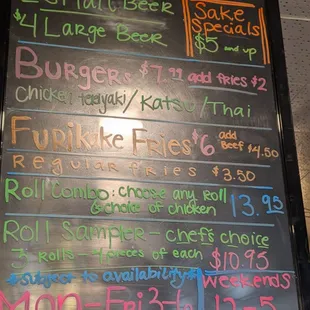 Small Beer
$4 Large Beer
Sake
Specials
$5 and up
Burgers $7.99 add fries $2
Chicken Teriyaki / Katsu / Thai
Furikake Fries $6 add
Beef $4.50
Regular fries $3.50
Roll Combo: choose any roll
& choice of chicken 13.95
Roll Sampler - chef's choice
Rolls - pieces of each $10.95
*Subject to availability*
Weekends
Mon-Fri 3-6 12-5